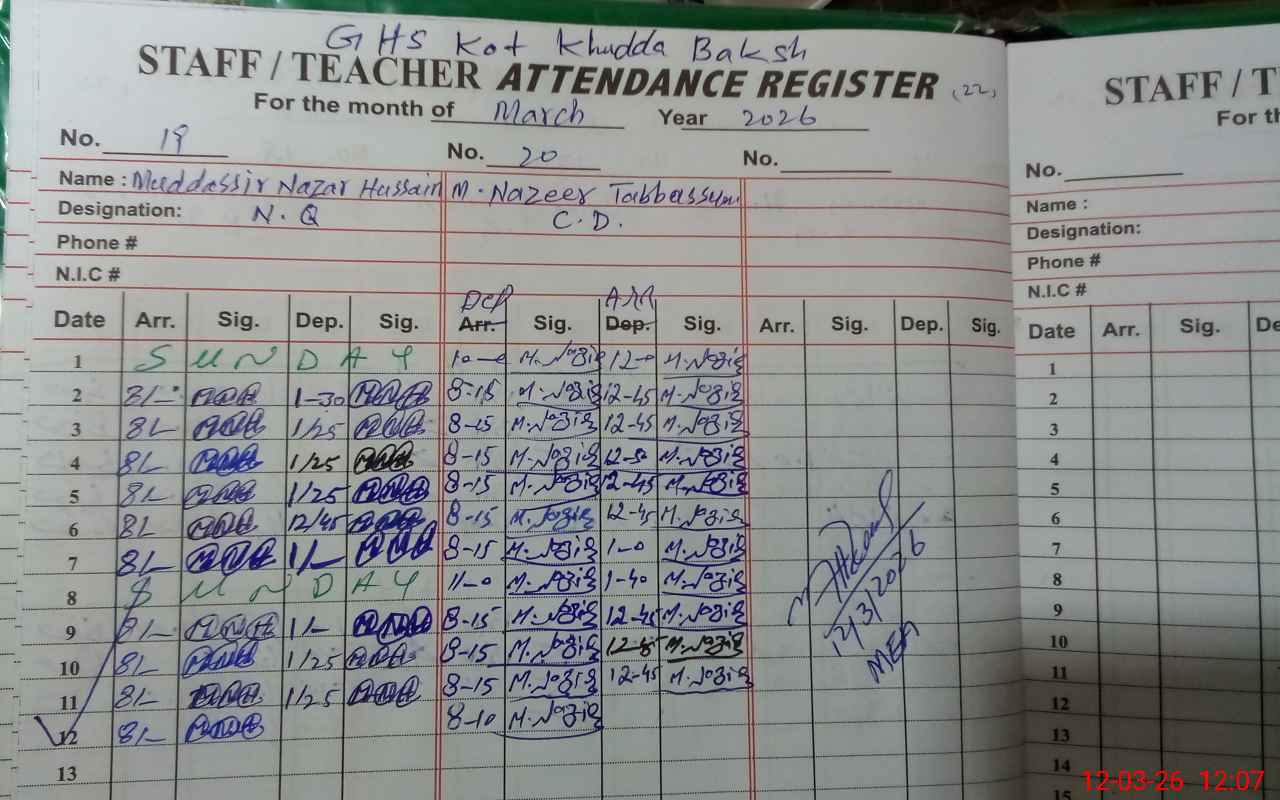 GHS Kot Khudda Baksh
STAFF / TEACHER ATTENDANCE REGISTER (22)
For the month of March Year 2026
No. 19 No. 20 No.
Name : Muddassir Nazar Hussain M. Nazeer Tabbassum
Designation: N.Q C.D.
Phone #
N.I.C #
Dep Arr
Date Arr. Sig. Dep. Sig. Arr. Sig. Dep. Sig. Arr. Sig. Dep. Sig.
1 SUNDAY 10-0 M. Nazir 12-0 M. Nazir
2 8/- 1-30 8-15 M. Nazir 12-45 M. Nazir
3 8/- 1/25 8-15 M. Nazir 12-45 M. Nazir
4 8/- 1/25 8-15 M. Nazir 12-50 M. Nazir
5 8/- 1/25 8-15 M. Nazir 12-45 M. Nazir
6 8/- 12/45 8-15 M. Nazir 12-45 M. Nazir
7 8/- 1/- 8-15 M. Nazir 1-0 M. Nazir
8 SUNDAY 11-0 M. Nazir 1-40 M. Nazir
9 8/- 1/- 8-15 M. Nazir 12-45 M. Nazir
10 8/- 1/25 8-15 M. Nazir M. Nazir
11 8/- 1/25 8-15 M. Nazir 12-45 M. Nazir
12 8/- 8-10 M. Nazir
13
12/3/2026
MEA
STAFF / T
For th
No.
Name :
Designation:
Phone #
N.I.C #
Date Arr. Sig. De
1
2
3
4
5
6
7
8
9
10
11
12
13
14
15
12-03-26 12:07